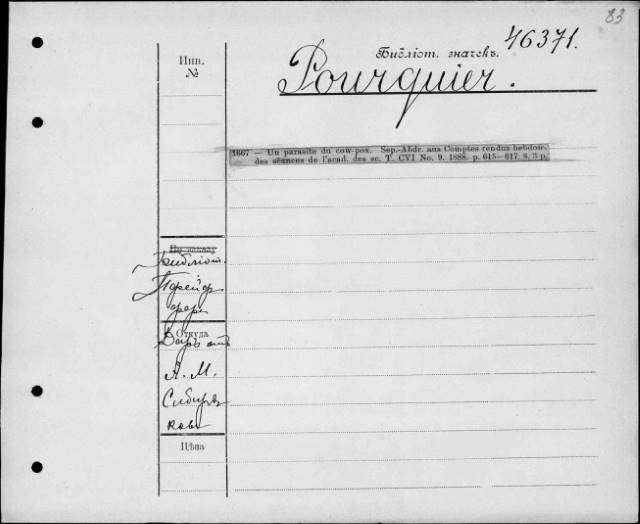 83
Библіот. значекъ. 46371.
Инв.
№
Pourquier.
1667 — Un parasite du cow-pox. Sep.-Abdr. aus Comptes rendus hebdom.
des séances de l'acad. des sc. T. CVI No. 9. 1888. p. 615—617. 8, 3 p.
По заказу
Библіот.
Пфейф
фера
Откуда
Даръ отъ
А. М.
Сибиря
кова
Цѣна